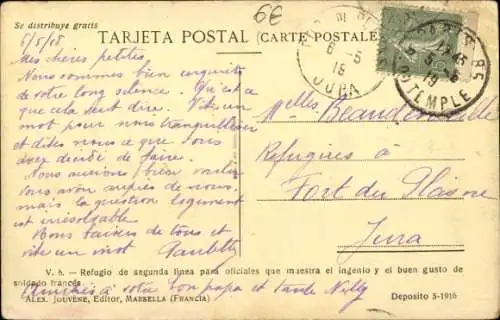 Se distribuye gratis
6€
TARJETA POSTAL (CARTE POSTALE)
5/5/18
Mes chères petites
Nous sommes bien inquiets
de votre long silence. Qu'est ce
que cela veut dire. Vite un
mot pour nous tranquilliser
et dites nous ce que vous
avez décidé de faire.
Nous aurions bien voulu
vous avoir auprès de nous,
mais la question logement
est insoluble
Bons baisers de tous et
vite un mot
Paulette
Melles
Réfugiées à
Fort du Plasne
Jura
6 - 5
18
JURA
PARIS 85
R. DU TEMPLE
V. 6. - Refugio de segunda linea para oficiales que muestra el ingenio y el buen gusto de
soldado francés
ALEX. JOUVÈNE, Editor, MARSELLA (FRANCIA)
Deposito 3-1916
à votre bon papa et tante Nelly